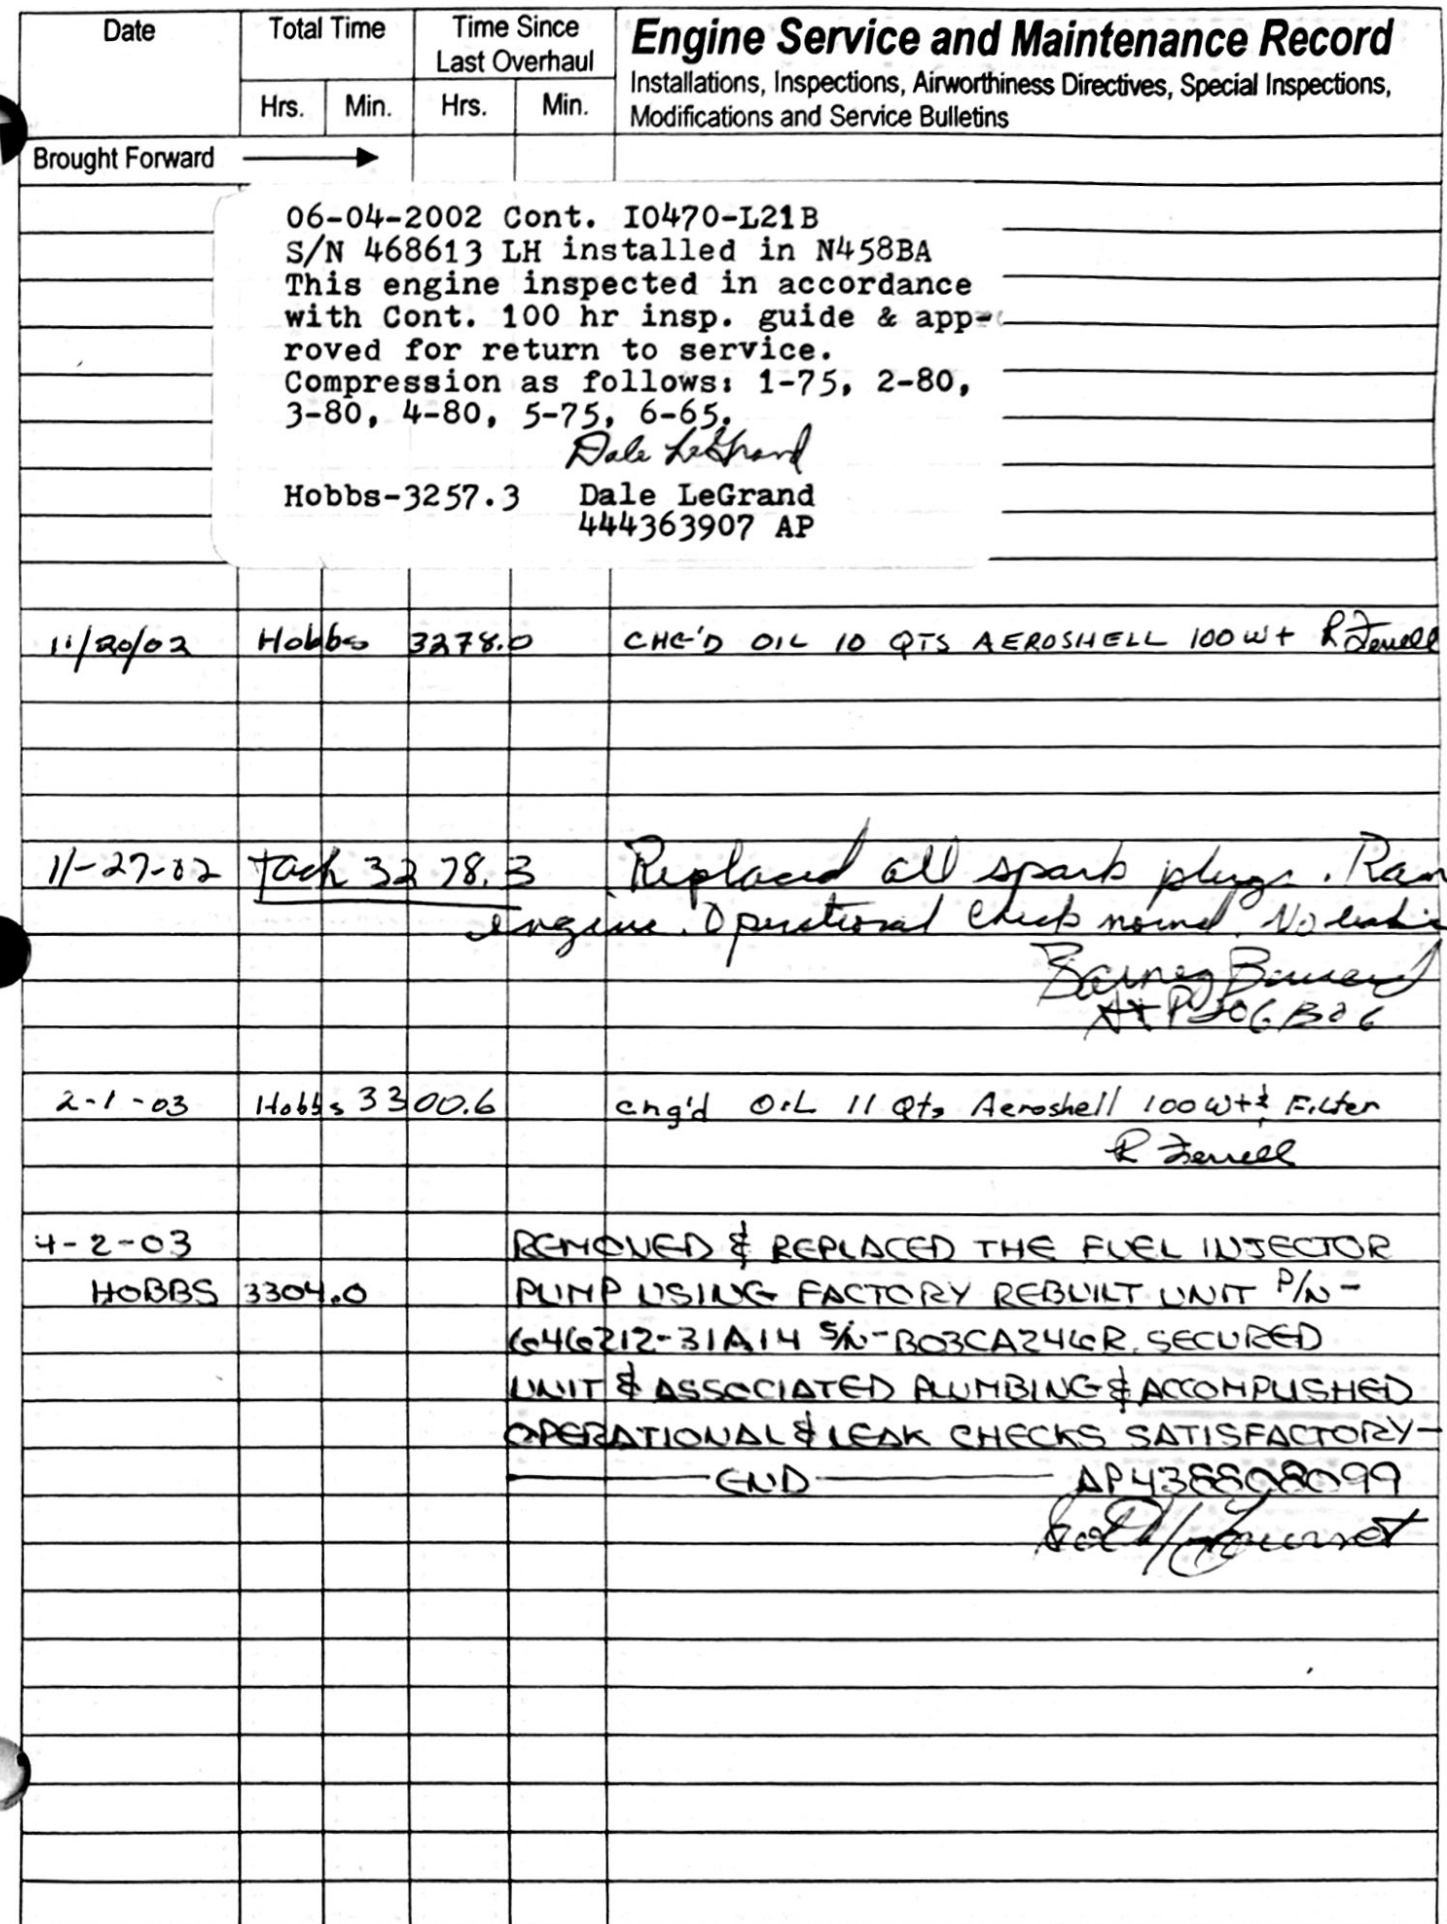 Date Total Time Time Since Last Overhaul Engine Service and Maintenance Record
Installations, Inspections, Airworthiness Directives, Special Inspections,
Hrs. Min. Hrs. Min. Modifications and Service Bulletins
Brought Forward
06-04-2002 Cont. IO470-L21B
S/N 468613 LH installed in N458BA
This engine inspected in accordance
with Cont. 100 hr insp. guide & app-
roved for return to service.
Compression as follows: 1-75, 2-80,
3-80, 4-80, 5-75, 6-65.
Dale LeGrand
Hobbs-3257.3 Dale LeGrand
444363907 AP
11/20/02 Hobbs 3278.0 CHG'D OIL 10 QTS AEROSHELL 100 Wt
11-27-02 Tach 3278.3 Replaced all spark plugs. Ran
engine. Operational Check normal. No
Barney
2-1-03 Hobbs 3300.6 chg'd OIL 11 Qts Aeroshell 100 Wt & Filter
4-2-03 REMOVED & REPLACED THE FUEL INJECTOR
HOBBS 3304.0 PUMP USING FACTORY REBUILT UNIT P/N-
646212-31A14 S/N-B03CA246R. SECURED
UNIT & ASSOCIATED PLUMBING & ACCOMPLISHED
OPERATIONAL & LEAK CHECKS SATISFACTORY-
END AP438808099